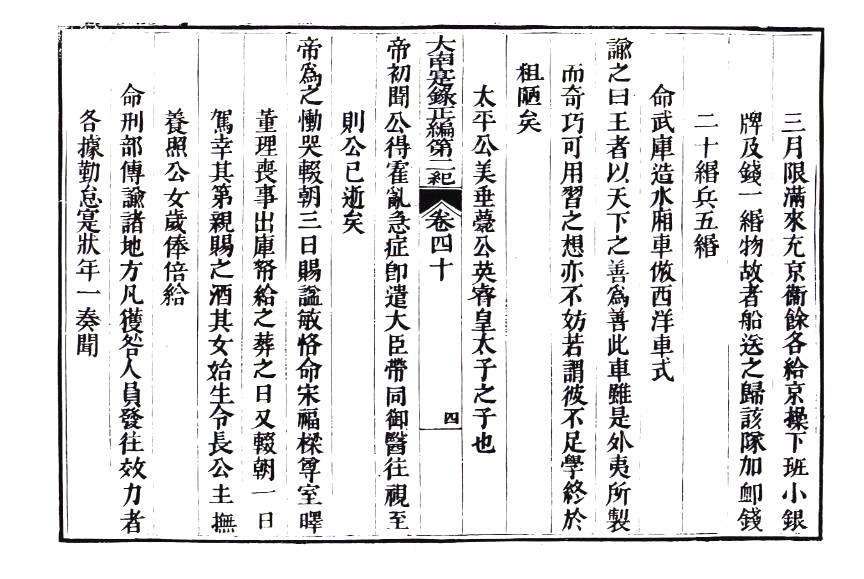 三月限滿來充京衞餘各給京操下班小銀
牌及錢一緡物故者船送之歸該隊加卹錢
二十緡兵五緡
命武庫造水廂車倣西洋車式
諭之曰王者以天下之善爲善此車雖是外夷所製
而奇巧可用習之想亦不妨若謂彼不足學終於
粗陋矣
太平公美垂薨公英睿皇太子之子也
大南寔錄正編第二紀 卷四十 四
帝初聞公得霍亂急症卽遣大臣帶同御醫往視至
則公已逝矣
帝爲之慟哭輟朝三日賜諡敏恪命宋福樑尊室㬢
董理喪事出庫帑給之葬之日又輟朝一日
駕幸其第親賜之酒其女始生令長公主撫
養照公女歲俸倍給
命刑部傳諭諸地方凡獲咎人員發往效力者
各據勤怠寔狀年一奏聞